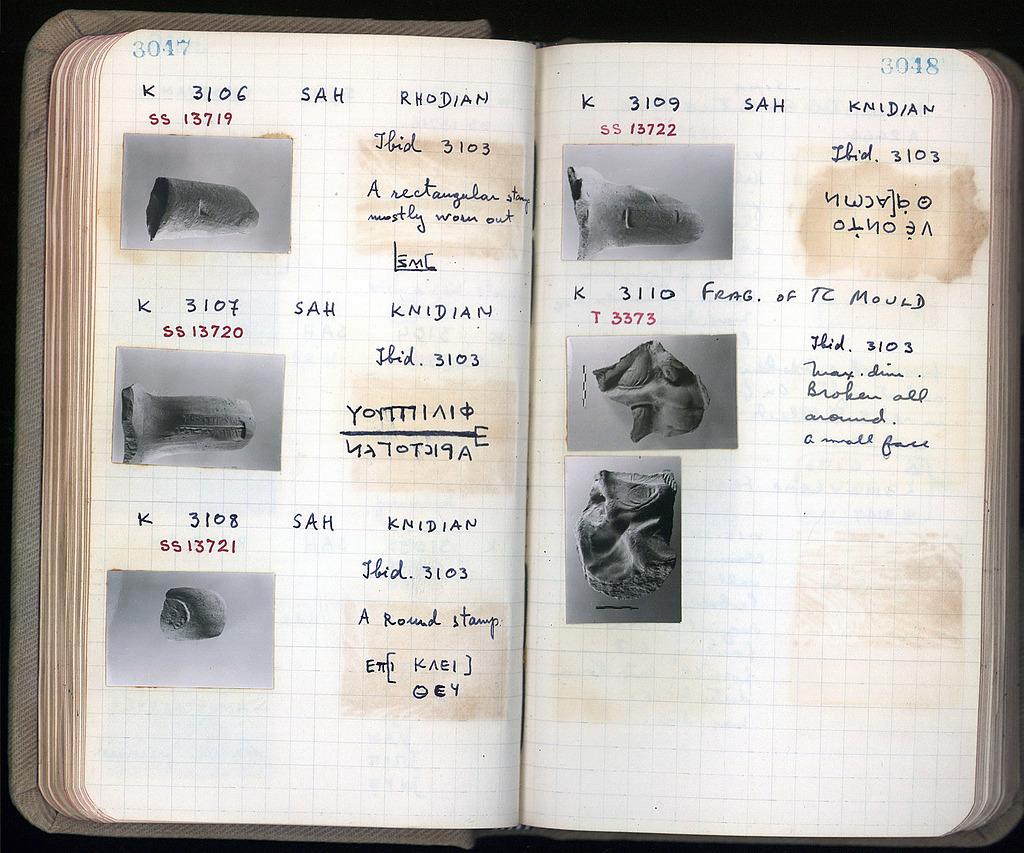 3047
K 3106 SAH RHODIAN
SS 13719
Ibid 3103
A rectangular stamp
mostly worn out
K 3107 SAH KNIDIAN
SS 13720
Ibid. 3103
ΥΟΠΠΙΛΙΦ
Ε
ΑΡΙCΤΟΤΕΛ
K 3108 SAH KNIDIAN
SS 13721
Ibid. 3103
A Round stamp.
ΕΠ[Ι ΚΛΕΙ]
ΘΕΥ
3048
K 3109 SAH KNIDIAN
SS 13722
Ibid. 3103
K 3110 FRAG. OF TC MOULD
T 3373
Ibid. 3103
Max. dim.
Broken all
around.
a small face